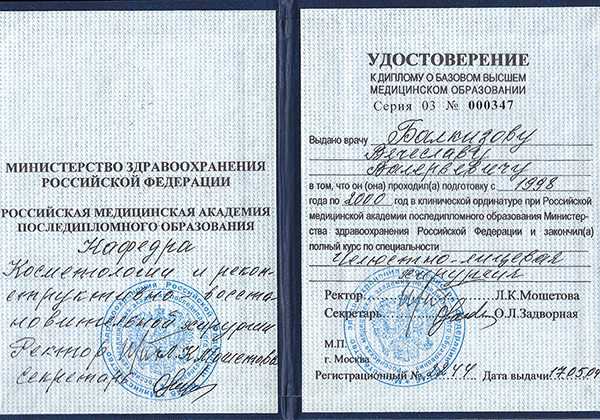 МИНИСТЕРСТВО ЗДРАВООХРАНЕНИЯ
РОССИЙСКОЙ ФЕДЕРАЦИИ
РОССИЙСКАЯ МЕДИЦИНСКАЯ АКАДЕМИЯ
ПОСЛЕДИПЛОМНОГО ОБРАЗОВАНИЯ
Кафедра
Косметологии и рекон-
структивно восста
новительной хирургии
Ректор Л.К.Мошетова
секретарь
УДОСТОВЕРЕНИЕ
К ДИПЛОМУ О БАЗОВОМ ВЫСШЕМ
МЕДИЦИНСКОМ ОБРАЗОВАНИИ
Серия 03 № 000347
Выдано врачу Балкизову
Вячеславу
Валерьевичу
в том, что он (она) проходил(а) подготовку с 1998
года по 2000 год в клинической ординатуре при Российской
медицинской академии последипломного образования Министер-
ства здравоохранения Российской Федерации и закончил(а)
полный курс по специальности
Челюстно-лицевая
хирургия
Ректор Л.К.Мошетова
Секретарь О.Л.Задворная
М.П.
г. Москва
Регистрационный № 2244 Дата выдачи 17.05.04